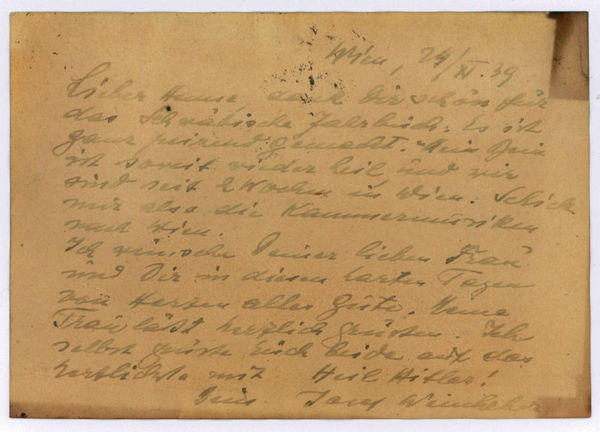 Wien, 24/XI.39
Lieber Hans, dank Dir schön für
das Schwäbische Jahrbuch. Es ist
ganz gemacht. Mein Bein
ist somit wieder heil, und wir
sind seit 2 Wochen in Wien. Schick
mir also die Kammermusiken
nach Wien.
Ich wünsche Deiner lieben Frau
und Dir in diesen harten Tagen
von Herzen alles Gute. Meine
Frau läßt herzlich grüssen. Ich
selbst grüsse Euch beide auf das
herzlichste mit Heil Hitler!
Dein Josef Weinheber